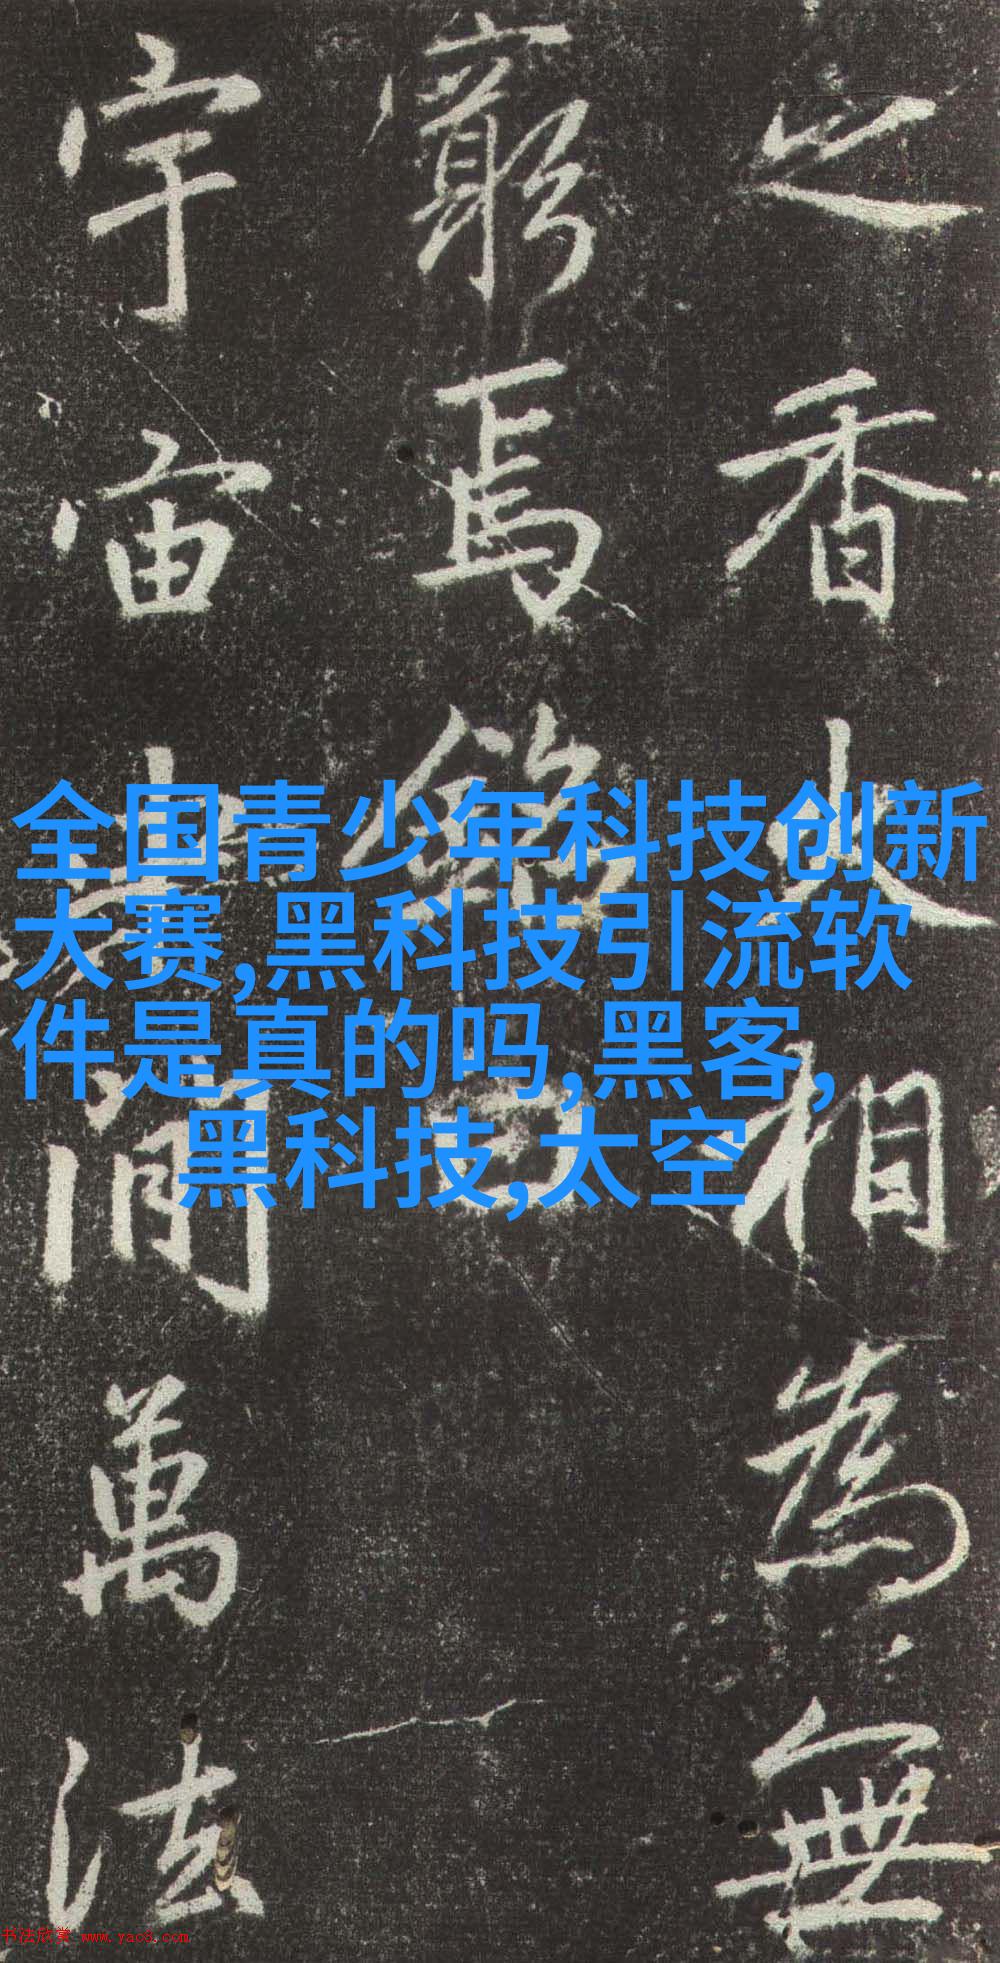 之香火相為無
窮焉銘曰
宇宙之間萬法
全国青少年科技创新
大赛,黑科技引流软
件是真的吗,黑客,
黑科技,太空
书法欣赏 www.yac8.com